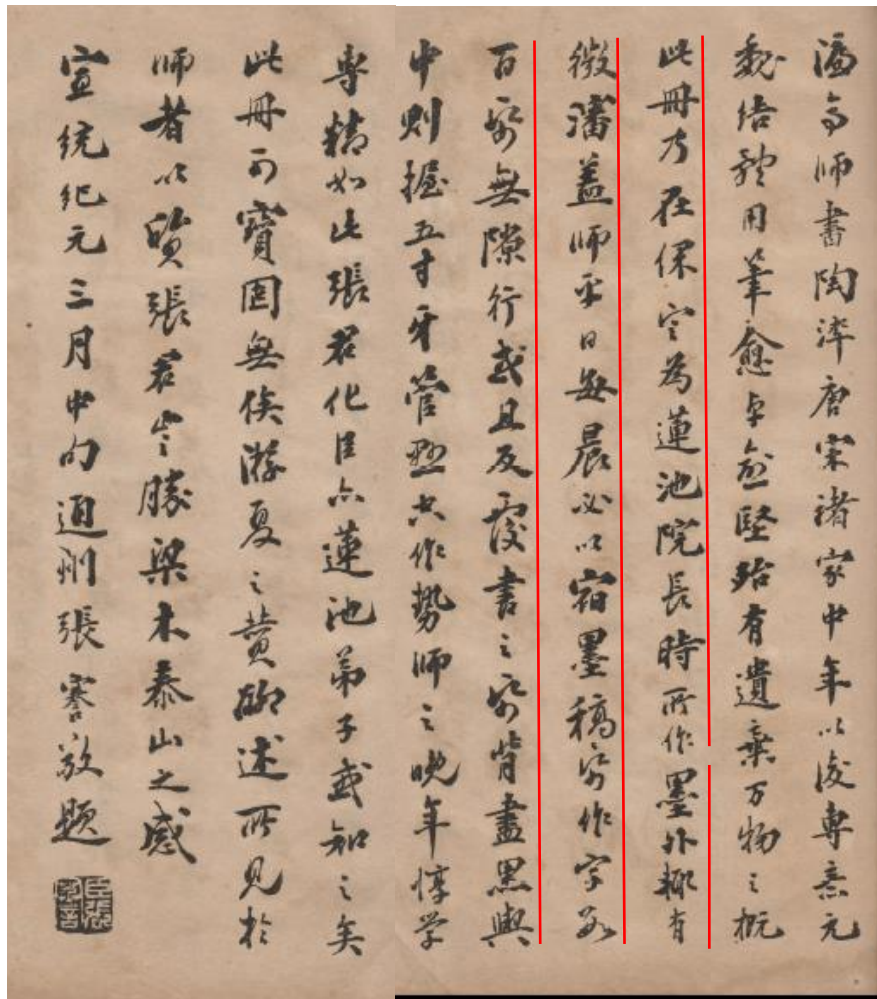 濂亭師書陶淬唐宋諸家中年以後專意元
魏結體用筆愈卓愈堅殆有遺棄万物之概
此冊乃在保定為蓮池院長時所作墨外輒有
微瀋盖師平日每晨必以宿墨稿紙作字數
百紙無隙行或且反覆書之紙背盡黑輿
中則握五寸牙管懸空作勢師之晚年惇学
專精如此張君化臣亦蓮池弟子或知之矣
此冊可寶固無俟游夏之贊聊述所見於
師者以質張君豈勝梁木泰山之感
宣統紀元三月中旬通州張謇敬題